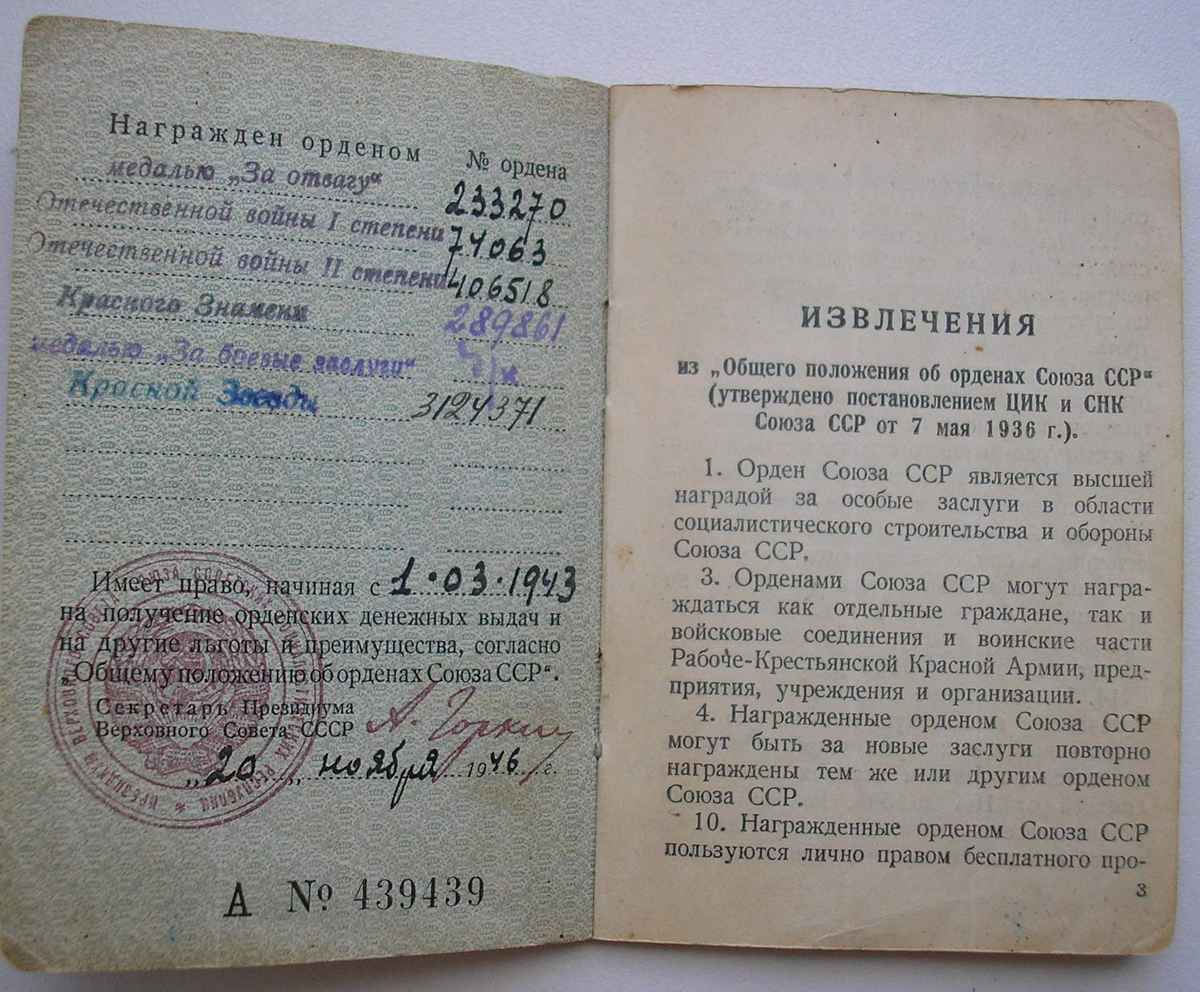 Награжден орденом № ордена
медалью „За отвагу“ 233270
Отечественной войны I степени 74063
Отечественной войны II степени 406518
Красного Знамени 289861
медалью „За боевые заслуги“ б/н
Красной Звезды 3124371
Имеет право, начиная с 1·03·1943
на получение орденских денежных выдач и
на другие льготы и преимущества, согласно
„Общему положению об орденах Союза ССР“.
Секретарь Президиума
Верховного Совета СССР А. Горкин
„20„ ноября 1946 г.
А № 439439
ИЗВЛЕЧЕНИЯ
из „Общего положения об орденах Союза ССР“
(утверждено постановлением ЦИК и СНК
Союза ССР от 7 мая 1936 г.).
1. Орден Союза ССР является высшей
наградой за особые заслуги в области
социалистического строительства и обороны
Союза ССР.
3. Орденами Союза ССР могут награ-
ждаться как отдельные граждане, так и
войсковые соединения и воинские части
Рабоче-Крестьянской Красной Армии, пред-
приятия, учреждения и организации.
4. Награжденные орденом Союза ССР
могут быть за новые заслуги повторно
награждены тем же или другим орденом
Союза ССР.
10. Награжденные орденом Союза ССР
пользуются лично правом бесплатного про-
3